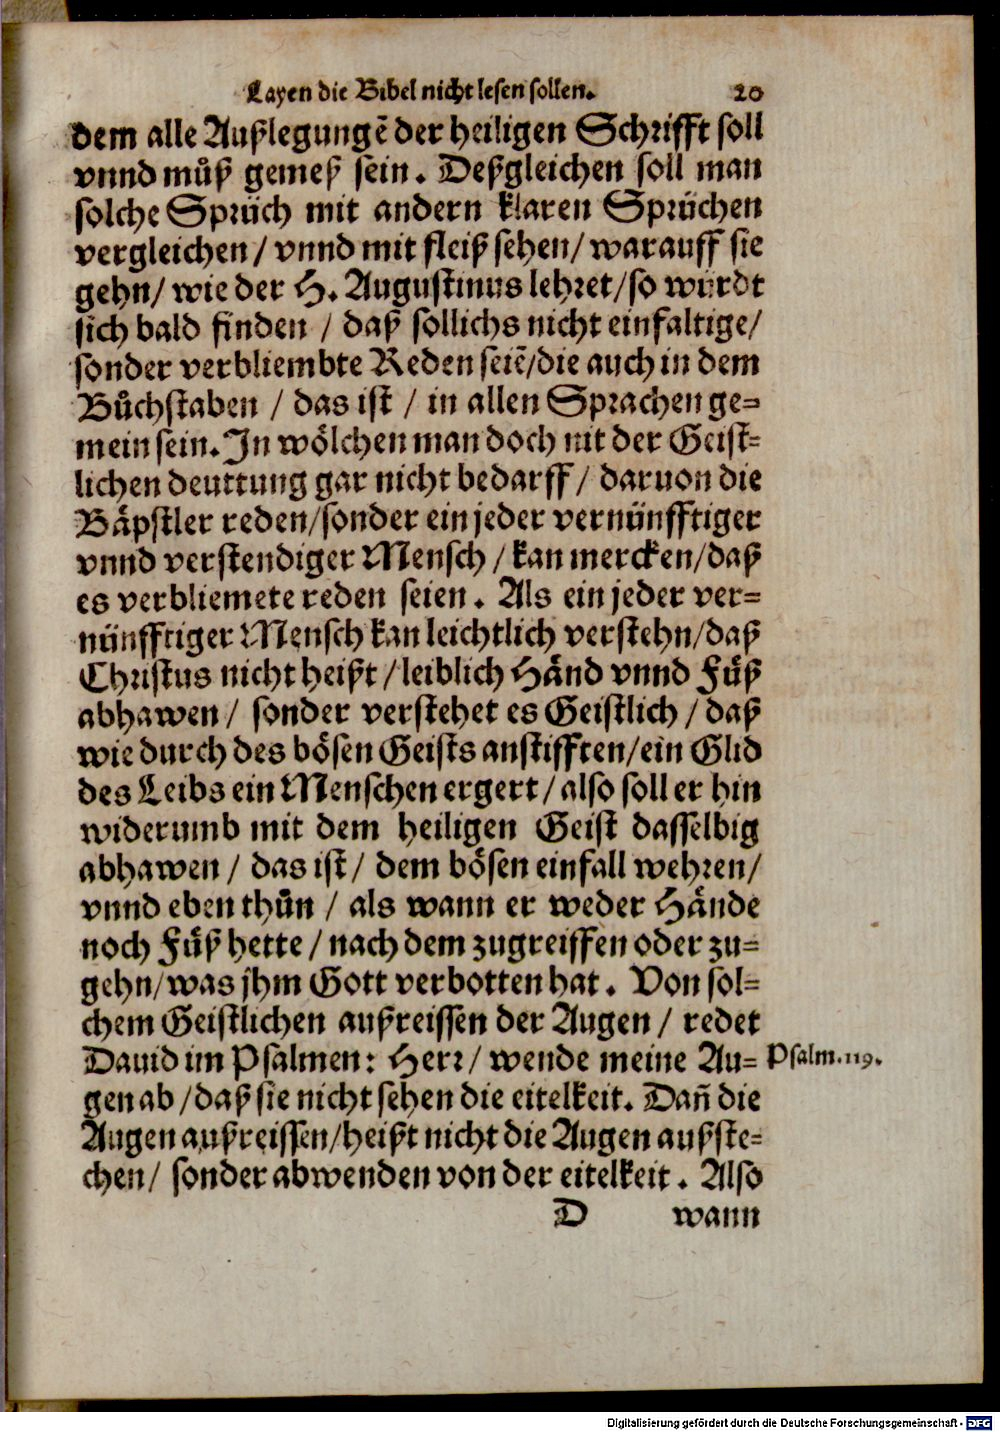 Layen die Bibel nicht lesen sollen. 20
dem alle Außlegungẽ der heiligen Schrifft soll
vnnd můß gemeß sein. Deßgleichen soll man
solche Sprüch mit andern klaren Sprüchen
vergleichen / vnnd mit fleiß sehen / warauff sie
gehn / wie der H. Augustinus lehret / so würdt
sich bald finden / daß sollichs nicht einfaltige /
sonder verbliembte Reden seiẽ / die auch in dem
Bůchstaben / das ist / in allen Sprachen ge=
mein sein. In wölchen man doch nit der Geist=
lichen deuttung gar nicht bedarff / daruon die
Bäpstler reden / sonder ein jeder vernünfftiger
vnnd verstendiger Mensch / kan mercken / daß
es verbliemete reden seien. Als ein jeder ver=
nünfftiger Mensch kan leichtlich verstehn / daß
Christus nicht heißt / leiblich Händ vnnd Füß
abhawen / sonder verstehet es Geistlich / daß
wie durch des bösen Geists anstifften / ein Glid
des Leibs ein Menschen ergert / also soll er hin
widerumb mit dem heiligen Geist dasselbig
abhawen / das ist / dem bösen einfall wehren /
vnnd eben thůn / als wann er weder Hände
noch Füß hette / nach dem zugreiffen oder zu=
gehn / was jhm Gott verbotten hat. Von sol=
chem Geistlichen außreissen der Augen / redet
Dauid im Psalmen: Herr / wende meine Au= Psalm. 119.
gen ab / daß sie nicht sehen die eitelkeit. Dañ die
Augen außreissen / heißt nicht die Augen außste=
chen / sonder abwenden von der eitelkeit. Also
D wann
Digitalisierung gefördert durch die Deutsche Forschungsgemeinschaft - DFG